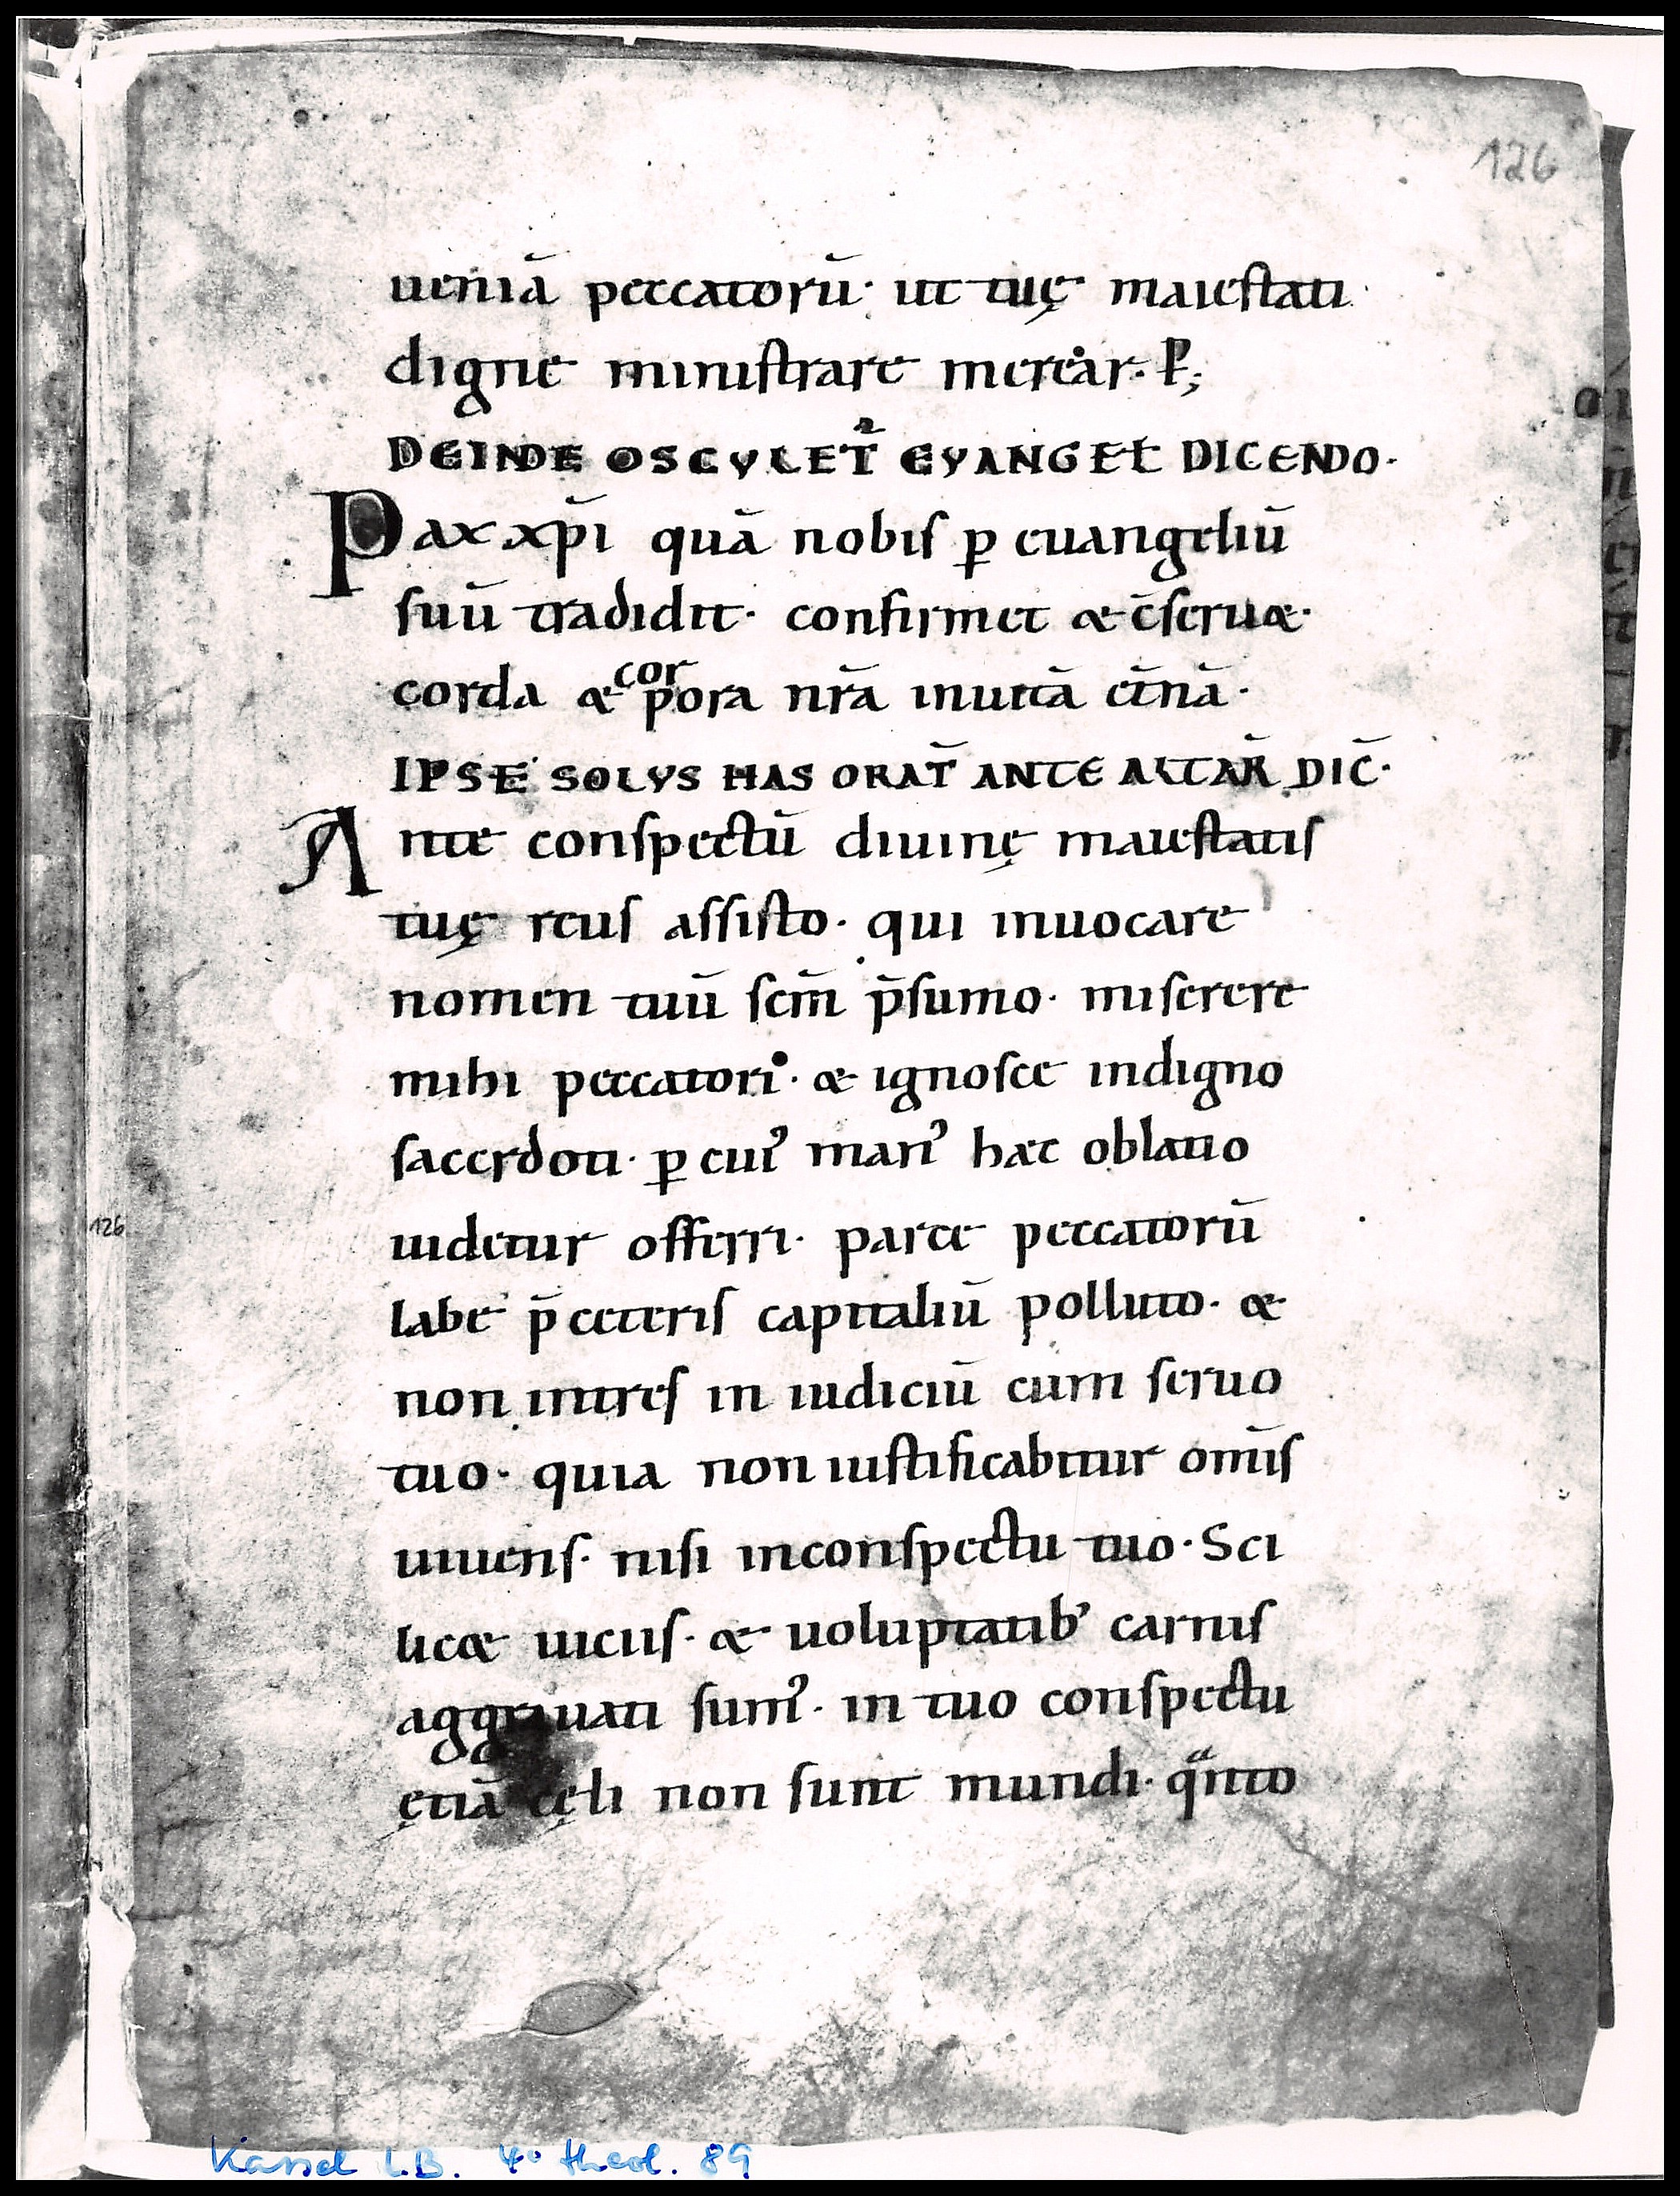 126
ueniā peccatorū· ut tuę maiestati·
digne ministrare merear· P̄;
DEINDE OSCVLET̄ EVANGEŁ DICENDO·
Pax xp̄i quā nobis ꝑ euangeliū
suū tradidit· confirmet & c̄seruet·
corda & corpora nr̄a inuitā et̄nā·
IPSE SOLVS HAS ORAT̄ ANTE ALTAR̄ DIC̄·
Ante conspectū diuinę maiestatis
tuę reus assisto· qui inuocare
nomen tuū sc̄m p̄sumo· miserere
mihi peccatori· & ignosce indigno
sacerdoti· ꝑ cuiꝰ manꝰ haec oblatio
uidetur offerri· parce peccatorū
labe p̄ ceteris capitaliū polluto· &
non intres in iudiciū cum seruo
tuo· quia non iustificabitur om̄is
uiuens· nisi inconspectu tuo· Sci
licet uiciis· & uoluptatibꝰ carnis
aggrauati sumꝰ· in tuo conspectu
ętiā cęli non sunt mundi· qᷓnto
126
Kassel L.B. 4° theol. 89